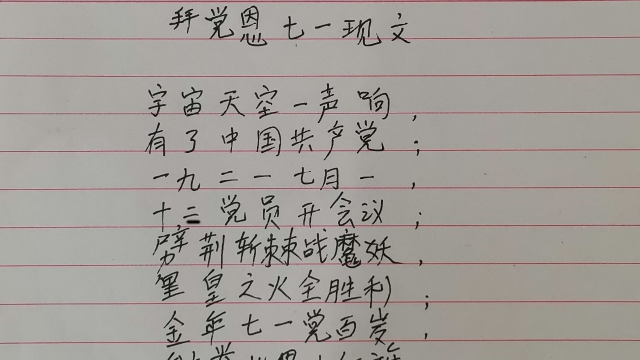 拜党恩七一现文
宇宙天空一声响，
有了中国共产党；
一九二一七月一，
十二党员开会议；
劈荆斩棘战魔妖，
星皇之火全胜利；
金年七一党百岁，